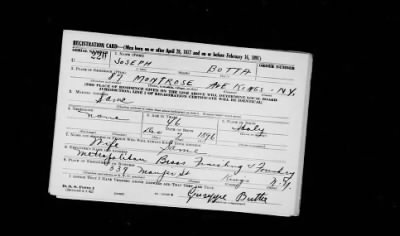 REGISTRATION CARD—(Men born on or after April 28, 1877 and on or before February 16, 1897)
SERIAL NUMBER 1. NAME (Print) ORDER NUMBER
U 224 JOSEPH BOTTA
2. PLACE OF RESIDENCE (Print)
87 MONTROSE AVE KINGS N.Y.
(THE PLACE OF RESIDENCE GIVEN ON THE LINE ABOVE WILL DETERMINE LOCAL BOARD
JURISDICTION; LINE 2 OF REGISTRATION CERTIFICATE WILL BE IDENTICAL)
3. MAILING ADDRESS
Same
4. TELEPHONE 5. AGE IN YEARS 6. PLACE OF BIRTH
none 46
DATE OF BIRTH
Dec 2 1896 Italy
7. NAME AND ADDRESS OF PERSON WHO WILL ALWAYS KNOW YOUR ADDRESS
Wife Same
8. EMPLOYER'S NAME AND ADDRESS
Metropolitan Brass Finishing & Foundry
9. PLACE OF EMPLOYMENT OR BUSINESS
339 St Kings N.Y.
I AFFIRM THAT I HAVE VERIFIED ABOVE ANSWERS AND THAT THEY ARE TRUE.
D. S. S. Form 1
Giuseppe Butta